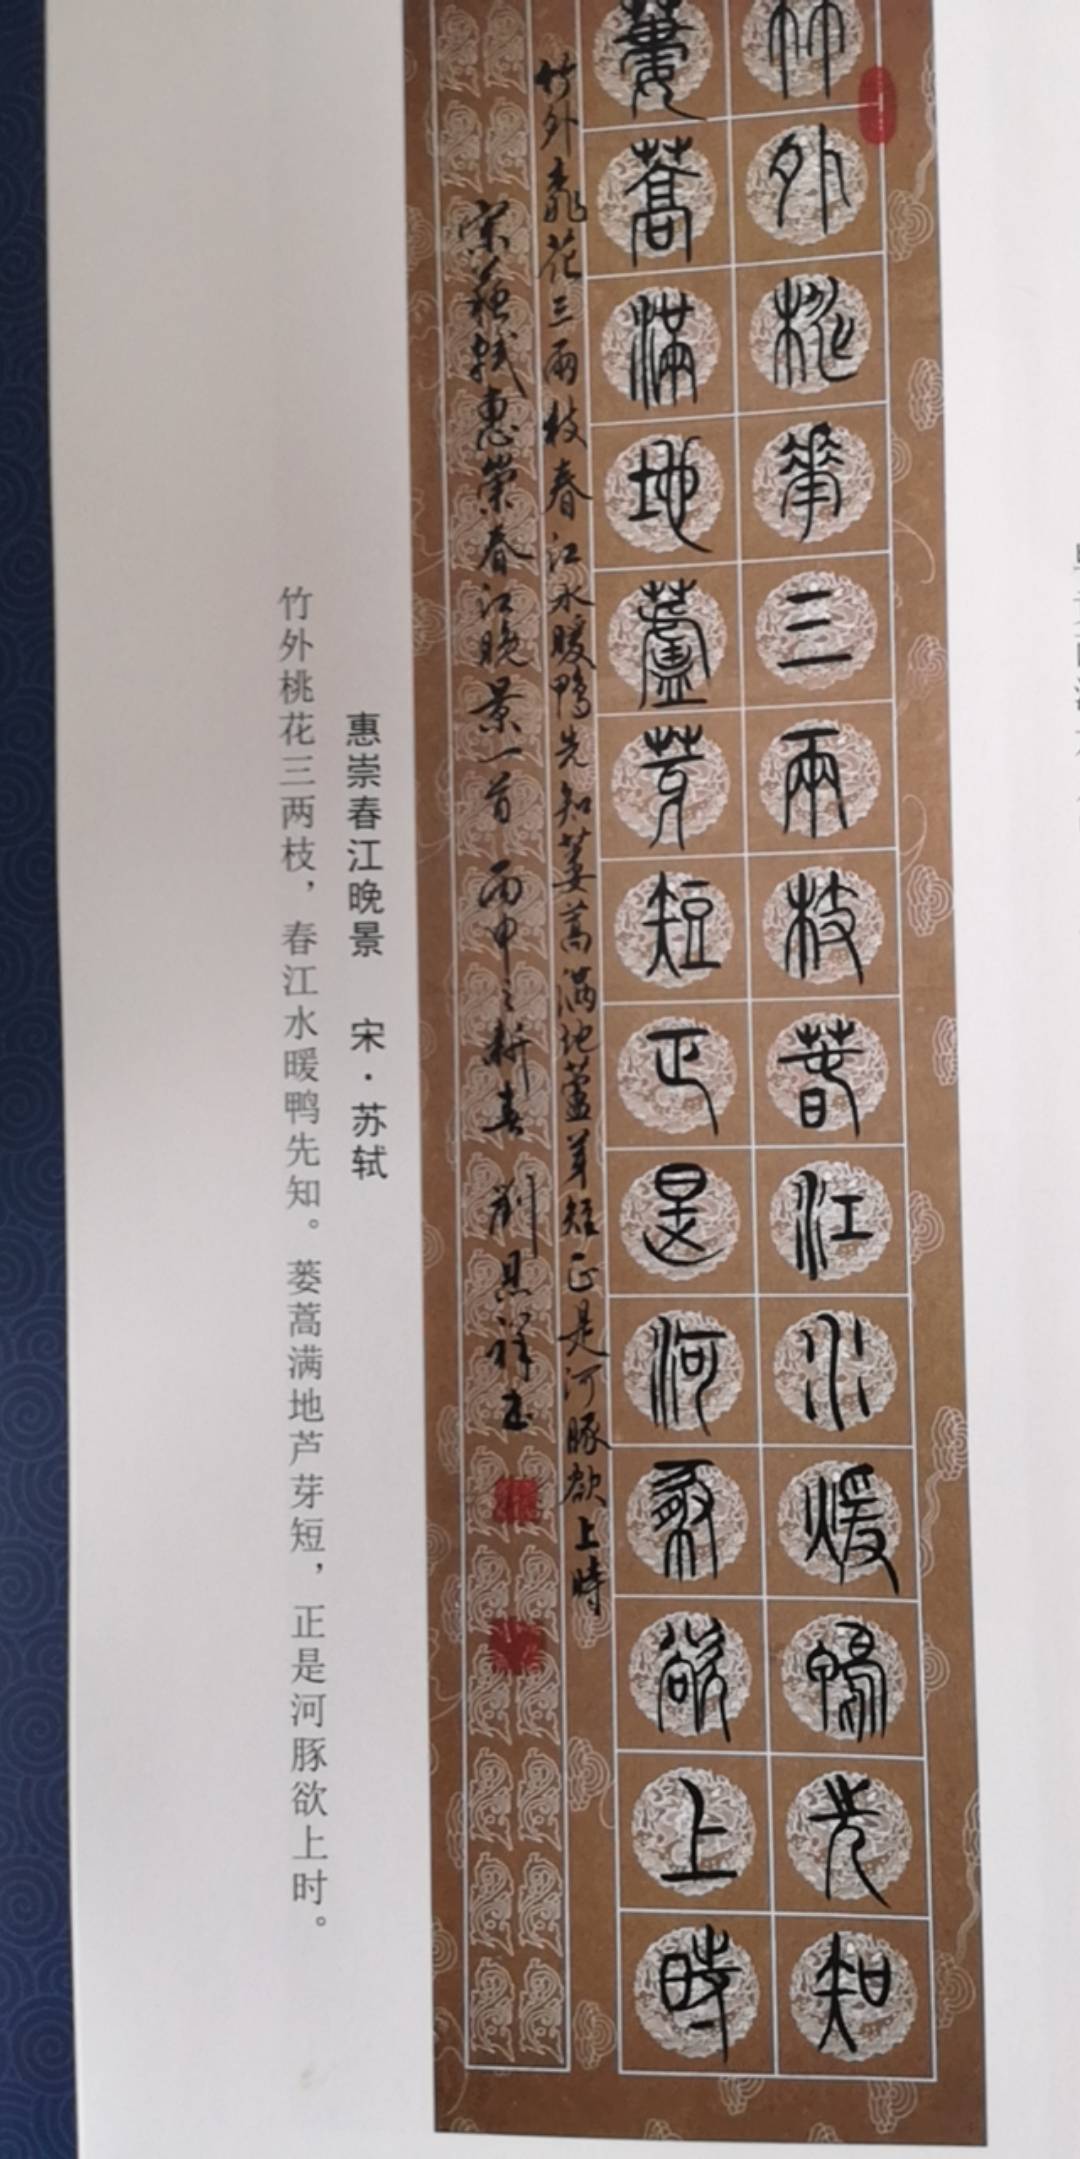 竹外桃華三兩枝春江水煖鴨先知
蔞蒿滿地蘆芽短正是河豚欲上時
竹外桃花三兩枝春江水暖鴨先知蔞蒿滿地蘆芽短正是河豚欲上時
宋蘇軾惠崇春江晚景一首 丙申之新春 劉恩祥書
惠崇春江晚景 宋·苏轼
竹外桃花三两枝，春江水暖鸭先知。蒌蒿满地芦芽短，正是河豚欲上时。